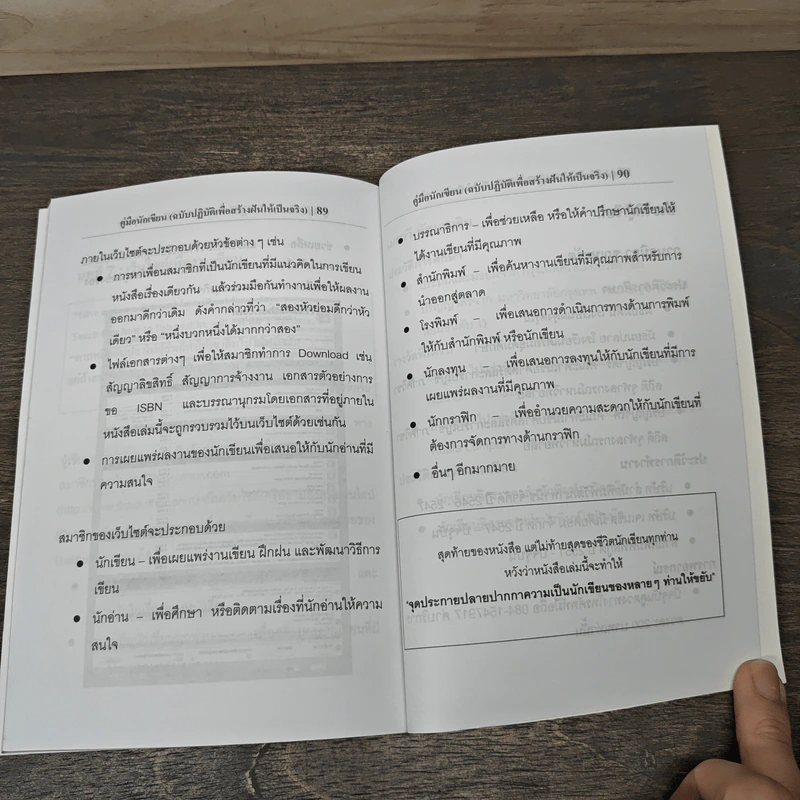 คู่มือนักเขียน (ฉบับปฏิบัติเพื่อสร้างฝันให้เป็นจริง) | 89
ภายในเว็บไซต์จะประกอบด้วยหัวข้อต่าง ๆ เช่น
• การหาเพื่อนสมาชิกที่เป็นนักเขียนที่มีแนวคิดในการเขียน
หนังสือเรื่องเดียวกัน แล้วร่วมมือกันทำงานเพื่อให้ผลงาน
ออกมาดีกว่าเดิม ดังคำกล่าวที่ว่า “สองหัวย่อมดีกว่าหัว
เดียว” หรือ “หนึ่งบวกหนึ่งได้มากกว่าสอง”
• ไฟล์เอกสารต่างๆ เพื่อให้สมาชิกทำการ Download เช่น
สัญญาลิขสิทธิ์ สัญญาการจ้างงาน เอกสารตัวอย่างการ
ขอ ISBN และบรรณานุกรมโดยเอกสารที่อยู่ภายใน
หนังสือเล่มนี้จะถูกรวบรวมไว้บนเว็บไซต์ด้วยเช่นกัน
• การเผยแพร่ผลงานของนักเขียนเพื่อเสนอให้กับนักอ่านที่มี
ความสนใจ
สมาชิกของเว็บไซต์จะประกอบด้วย
• นักเขียน – เพื่อเผยแพร่งานเขียน ฝึกฝน และพัฒนาวิธีการ
เขียน
• นักอ่าน – เพื่อศึกษา หรือติดตามเรื่องที่นักอ่านให้ความ
สนใจ
คู่มือนักเขียน (ฉบับปฏิบัติเพื่อสร้างฝันให้เป็นจริง) | 90
• บรรณาธิการ – เพื่อช่วยเหลือ หรือให้คำปรึกษานักเขียนให้
ได้งานเขียนที่มีคุณภาพ
• สำนักพิมพ์ – เพื่อค้นหางานเขียนที่มีคุณภาพสำหรับการ
นำออกสู่ตลาด
• โรงพิมพ์ – เพื่อเสนอการดำเนินการทางด้านการพิมพ์
ให้กับสำนักพิมพ์ หรือนักเขียน
• นักลงทุน – เพื่อเสนอการลงทุนให้กับนักเขียนที่มีการ
เผยแพร่ผลงานที่มีคุณภาพ
• นักกราฟิก – เพื่ออำนวยความสะดวกให้กับนักเขียนที่
ต้องการจัดการทางด้านกราฟิก
• อื่นๆ อีกมากมาย
สุดท้ายของหนังสือ แต่ไม่ท้ายสุดของชีวิตนักเขียนทุกท่าน
หวังว่าหนังสือเล่มนี้จะทำให้
“จุดประกายปลายปากกาความเป็นนักเขียนของหลาย ๆ ท่านให้ขยับ”